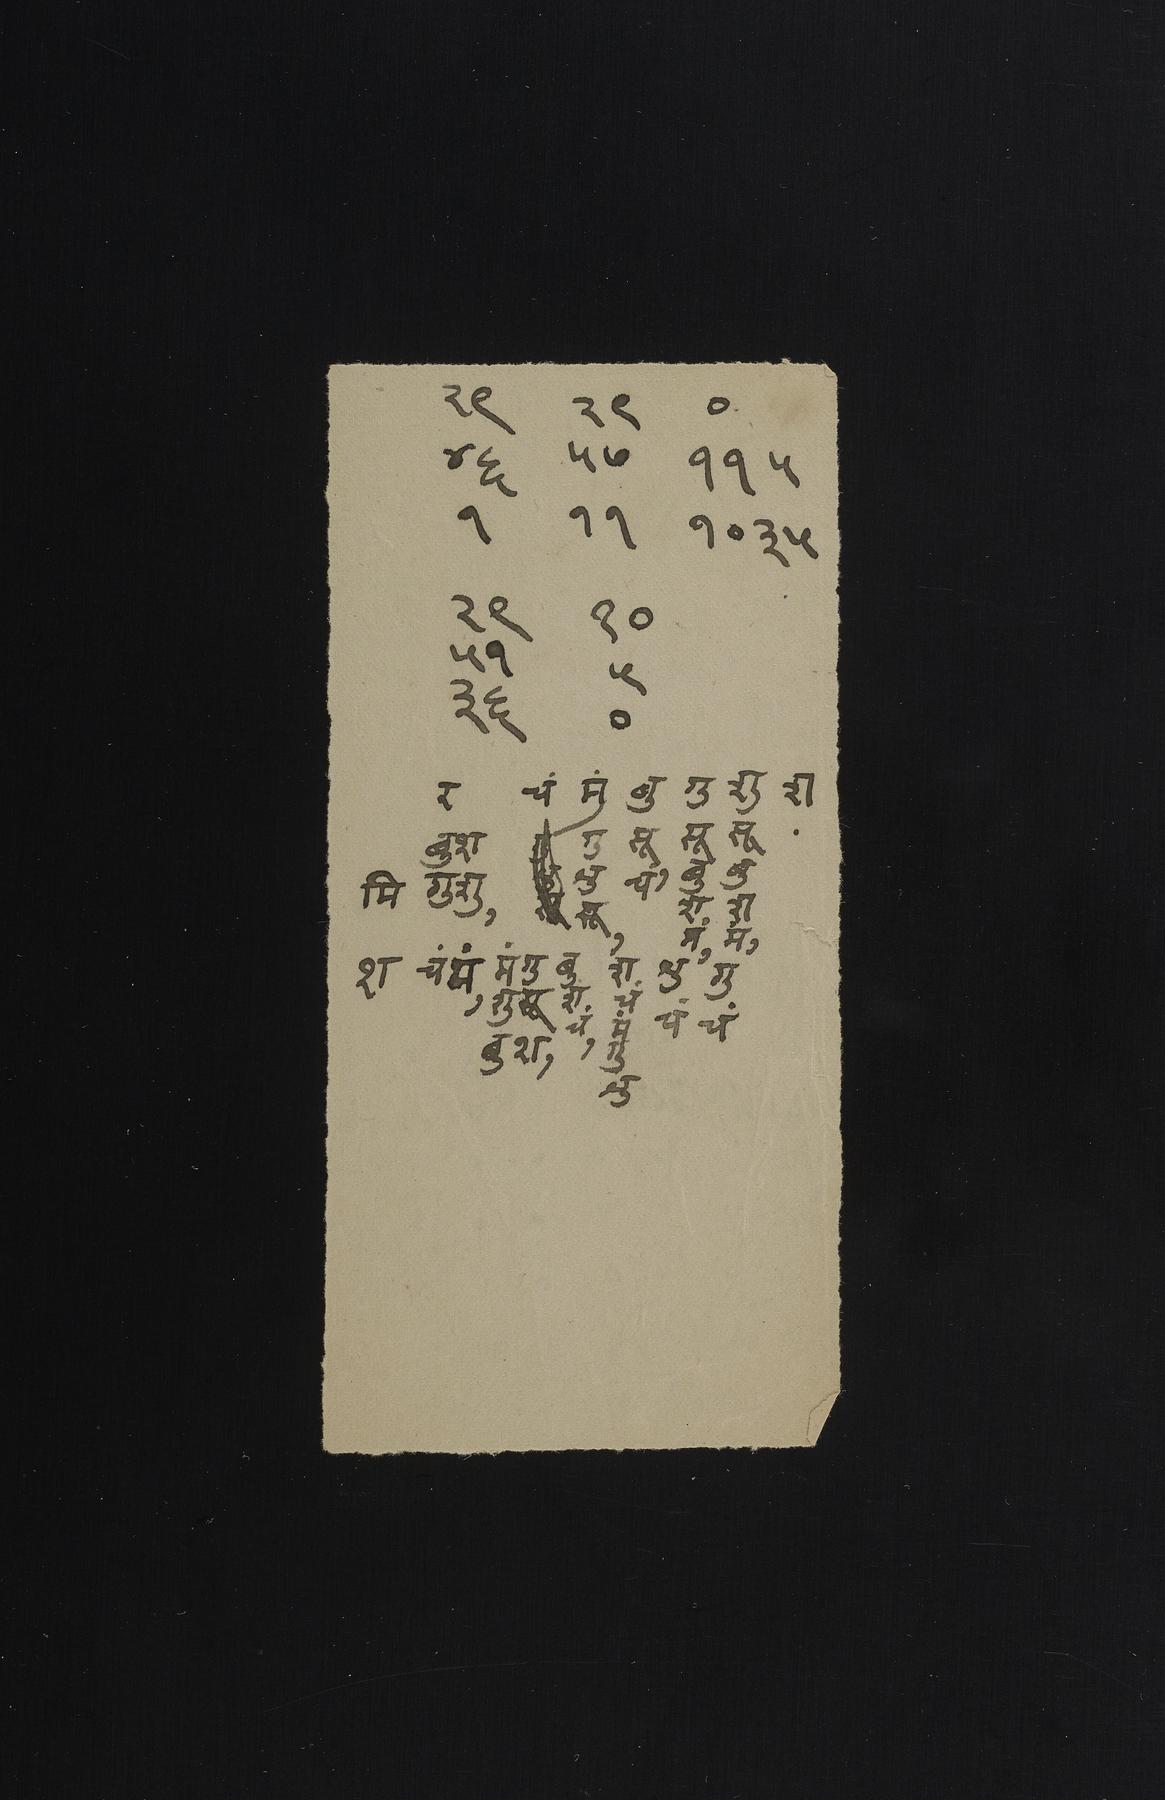 २९ २९ ०
४६ ५७ ११५
१ ११ १०३५
२९ १०
५१ ५
३६ ०
र चं मं बु गु शु श
बुश गु सू सू सू
मि गुशु, शु चं, बु बु
सू, श श
मं, मं,
श चंमं, मंगु बु श शु गु
शुसू श चं चं चं
बुश, चं, मं
गु
शु